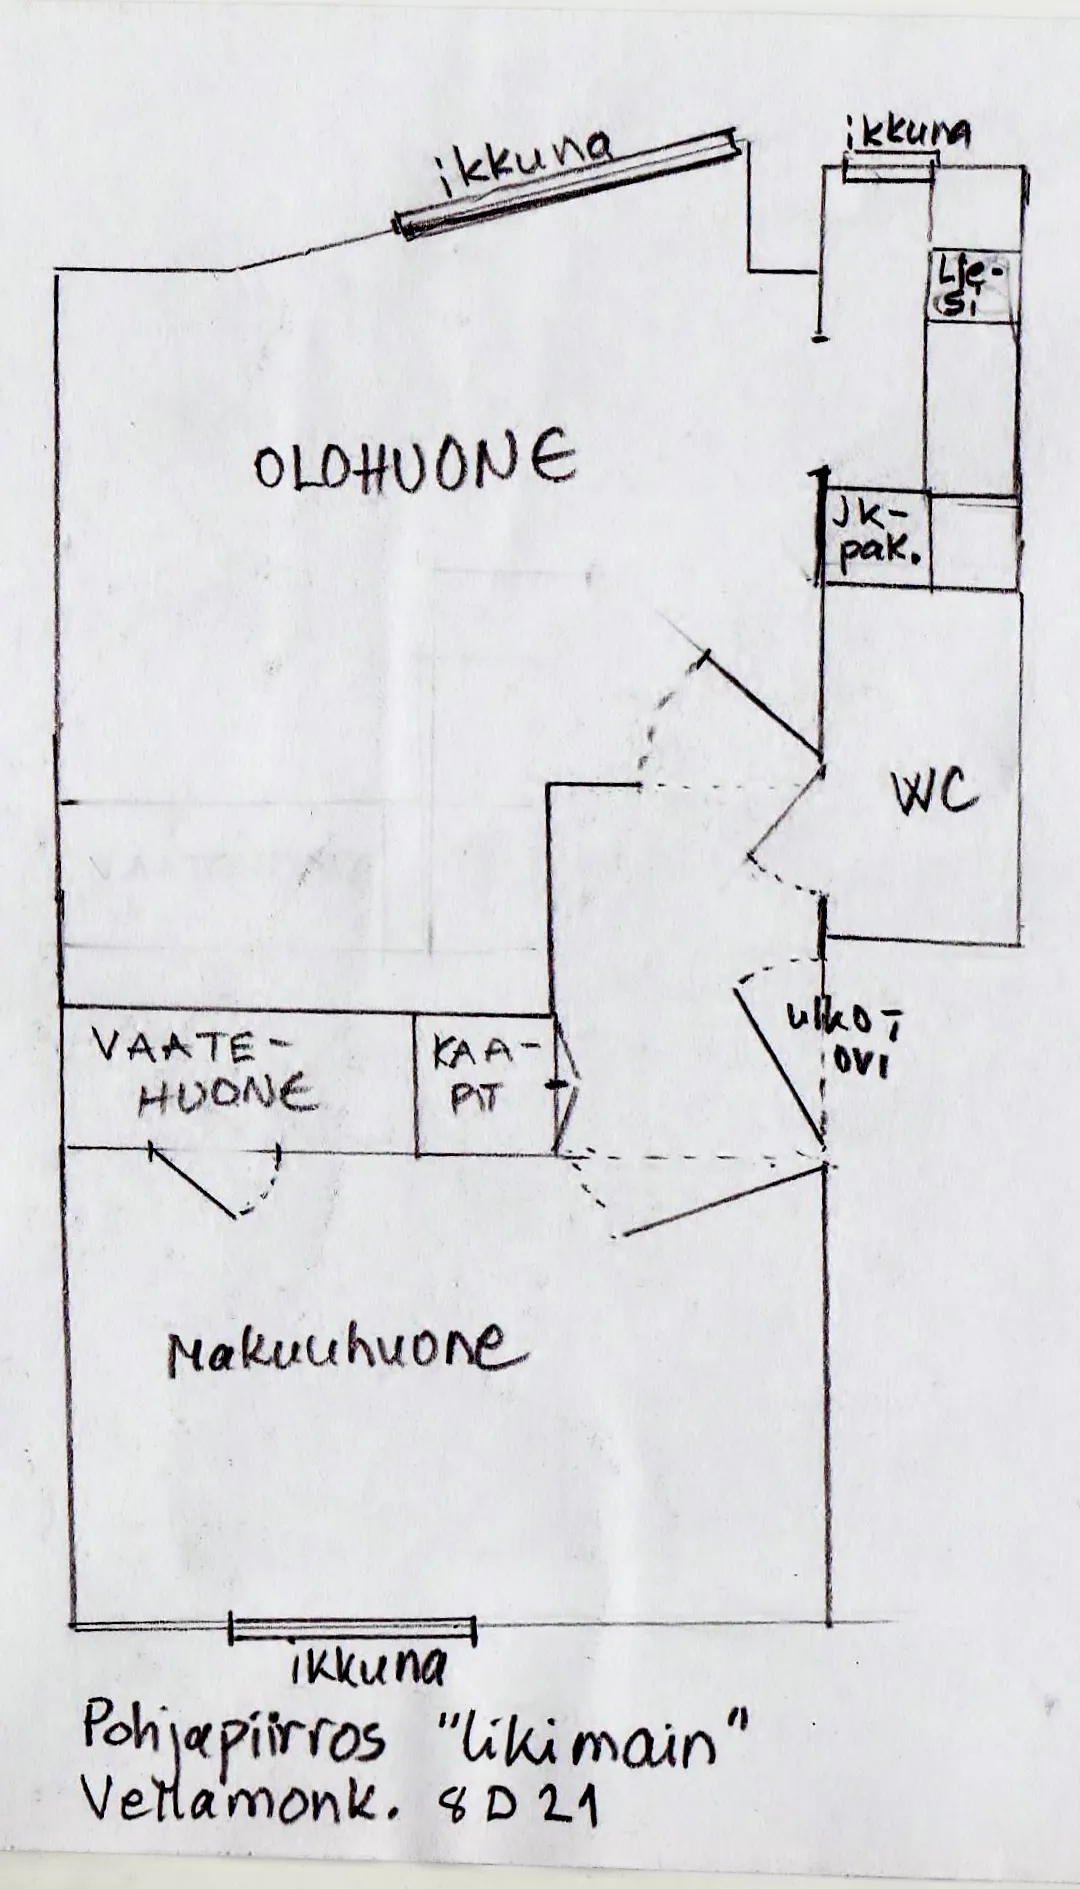 ikkuna
ikkuna
Lie-
si
OLOHUONE
JK-
pak.
WC
ulko-
ovi
VAATE-
HUONE
KAA-
PIT
Makuuhuone
ikkuna
Pohjapiirros "likimain"
Vellamonk. 8 D 21